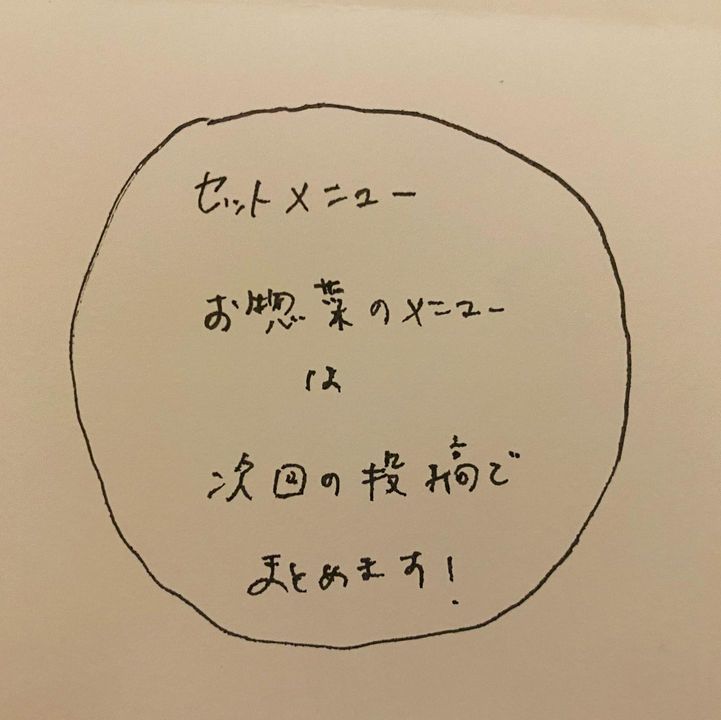 セットメニュー
お惣菜のメニュー
は
次回の投稿で
まとめます!